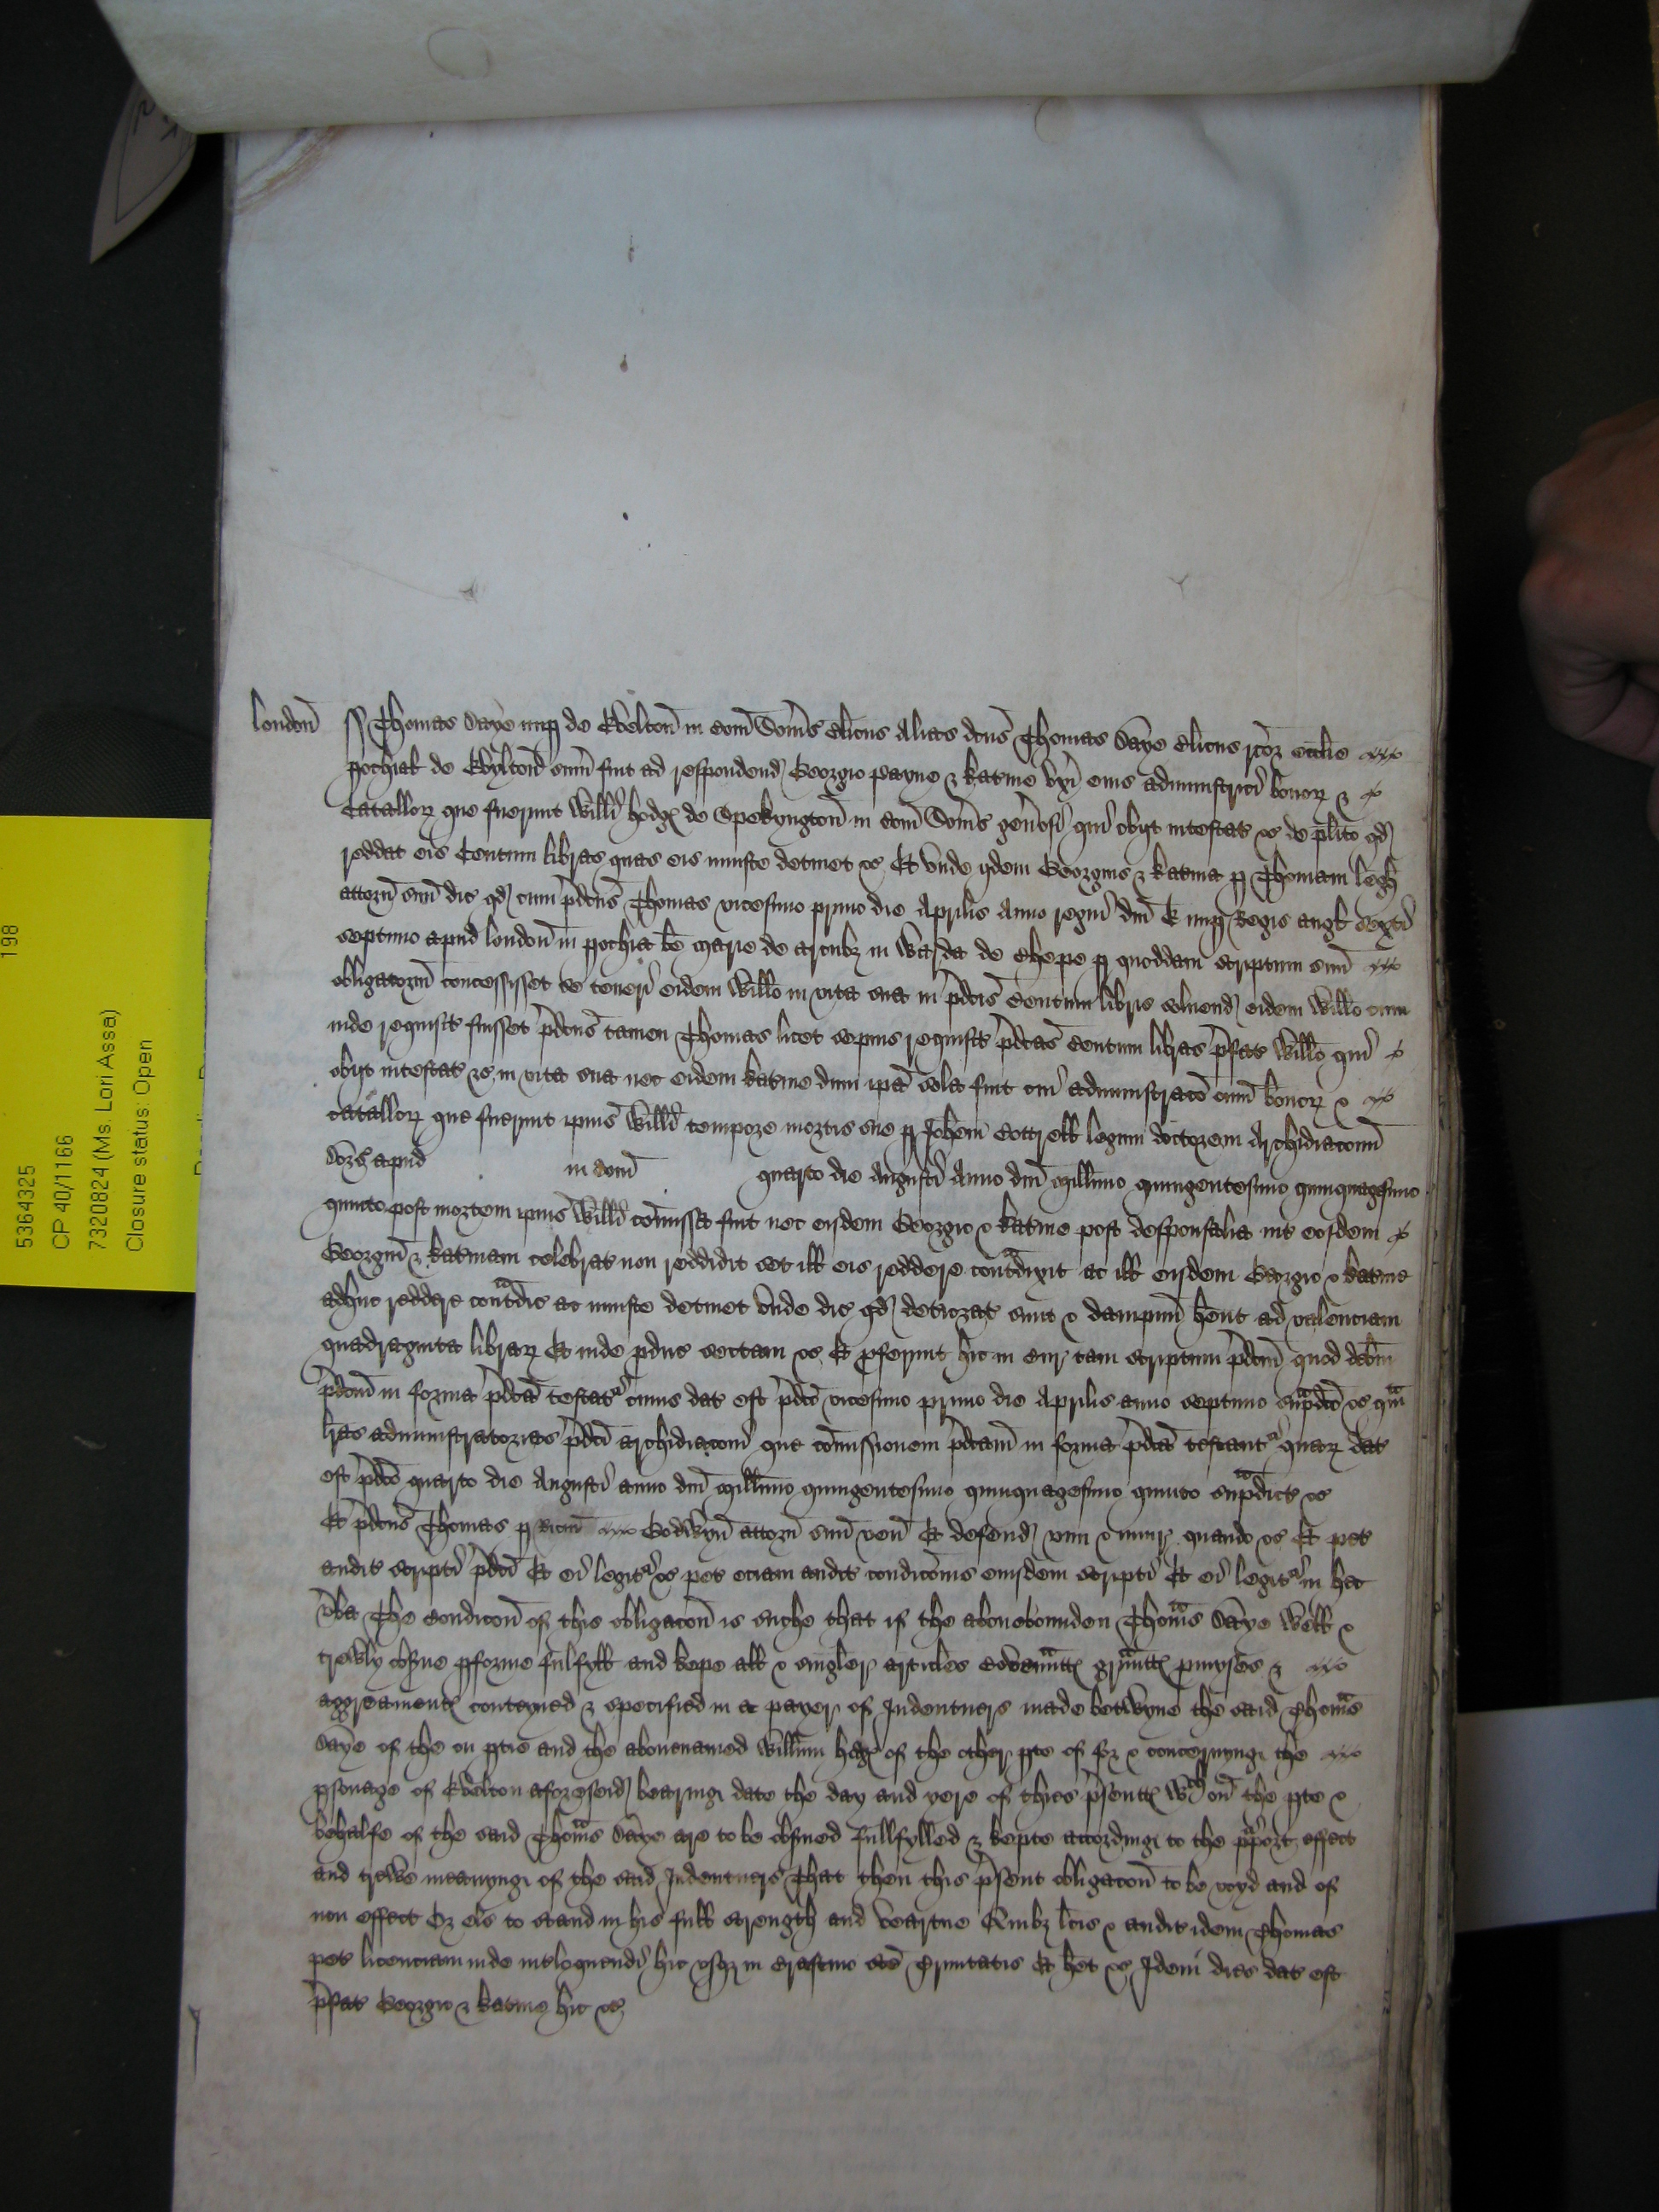 London ss Thomas Saye nup de Evelton in Com Soms Clicus Alias dcus Thomas Saye Clicus rcor ecclie
pochial de Evylton sum fuit ad respondend Georgio Payne & Katine uxi eius administrici bonor &
Catallor que fuerunt Willi Hodg de Spekyngton in Com Soms genosi qui obijt intestat &c de plito qd
reddat eis Centum libras quas eis iniuste detinet &c Et unde ijdem Georgius & Katina p Thomam Legh
attorn suu dic qd cum pdcus Thomas vicesimo primo die Aprilis Anno regni dni E nup Regis Angl Sexti
septimo apud London in pochia be Marie de Arcubz in Warda de Chepe p quoddam scriptum suu
obligatoriu concessisset se teneri eidem Willo in vita sua in pdcis Centum libris solvend eidem Willo cum
inde requisit fuisset pdcus tamen Thomas licet sepius requisit pdcas Centum libras pfat Willo qui
obijt intestat &c in vita sua nec eidem Katine dum ipa sola fuit cui administraco oium bonor &
catallor que fuerunt ipius Willi tempore mortis sue p Johem Cottrell legum doctorem Archidiaconu
Dors apud in Com quarto die Augusti Anno dni Millimo quingentesimo quinquagesimo
quinto post mortem ipius Willi comissa fuit nec eisdem Georgio & Katine post desponsalia int eosdem
Georgiu & Katinam celebrat non reddidit set ill eis reddere contadixit ac ill eisdem Georgio & Katine
adhuc reddere contadic ac iniuste detinet unde dic qd deteriorat sunt & dampnu hent ad valenciam
quadraginta librar Et inde pduc sectam &c Et pferunt hic in Cur tam scriptum pdcm quod debm
pdcm in forma pdca testat cuius dat est pdco vicesimo primo die Aprilis anno septimo supadco &c qam
lras administratorias pdci Archidiaconi que comissionem pdcam in forma pdca testant quar dat
est pdco quarto die Augusti anno dni Millimo quingentesimo quinquagesimo quinto supadict &c
Et pdcus Thomas p Ricm Godwyn attorn suu ven Et defend vim & iniur quando &c Et pet
audit scripti pdci Et ei legit &c pet eciam audit condicois eiusdem scripti Et ei legit in hec
vba The Condicon of this obligacon is suche that if the abovebounden Thomas Saye Well &
trewly obsve pforme fulfyll and kepe all & singler articles Covenatt grantt pmyses &
aggreament conteyned & specified in a payer of Indentures made betwyne the said Thomas
Saye of the on ptie and the abovenamed Willim hdg of the other pte of for & concernyng the
psonage of Evelton aforeseid bearing date the day and yere of thies psentt Wch on the pte &
behalfe of the said Thomas Saye are to be obsved fullfylled & kepte accordingi to the pport effect
and trewe meanyngi of the said Indentures That then this psent obligacon to be voyd and of
non effect Or els to stand in his full strength and veartue Quibz lcis & audit idem Thomas
pet licenciam inde intloquendi hic usqz in Crastino sce Trinitatis Et het &c Idem dies dat est
pfat Georgio & Katine hic &c
53641325
198
CP 40/1166
7320824 (Ms. Lori Assa)
Closure status: Open